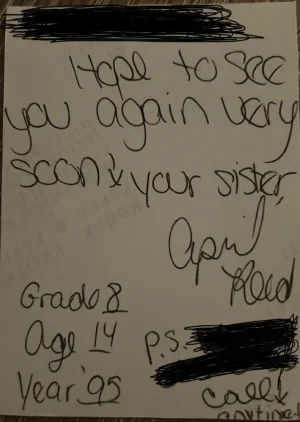 Hope to see
you again very
soon! your sister,
April
Reed
Grade 8
Age 14
Year '95
P.S.
call!
anytime!